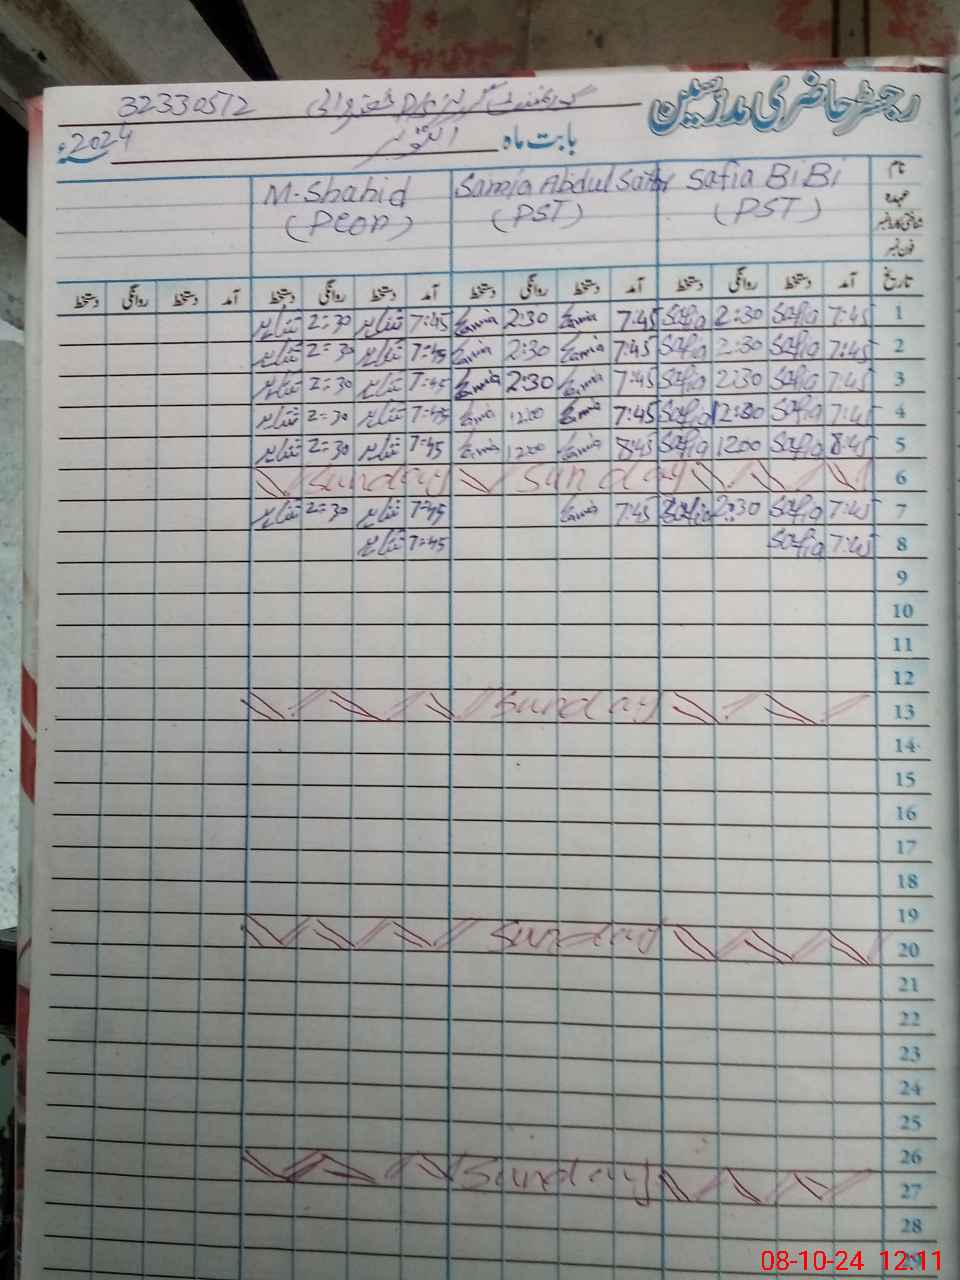 رجسٹر حاضری مدرسین 32330512
بابت ماہ اکتوبر 2024ء
نام Safia BiBi Samia Abdul Sattar M-Shahid
عہدہ (PST) (PST) (PEON)
شناختی کارڈ نمبر
فون نمبر
تاریخ آمد دستخط روانگی دستخط آمد دستخط روانگی دستخط آمد دستخط روانگی دستخط آمد دستخط روانگی دستخط
1 7:45 Safia 2:30 Safia 7:45 Samia 2:30 Samia 7=45 شاہد 2=30 شاہد
2 7:45 Safia 2:30 Safia 7:45 Samia 2:30 Samia 7=45 شاہد 2=30 شاہد
3 7:45 Safia 2:30 Safia 7:45 Samia 2:30 Samia 7=45 شاہد 2=30 شاہد
4 7:45 Safia 12:00 Safia 7:45 Samia 1200 Samia 7=45 شاہد 2=30 شاہد
5 8:45 Safia 1200 Safia 8:45 Samia 1200 Samia 7=45 شاہد 2=30 شاہد
6 Sunday Sunday
7 7:45 Safia 2:30 Safia 7:45 Samia 7=45 شاہد 2=30 شاہد
8 7:45 Safia 7=45 شاہد
9
10
11
12
13 Sunday
14
15
16
17
18
19
20 Sunday
21
22
23
24
25
26
27 Sunday
28
29
08-10-24 12:11